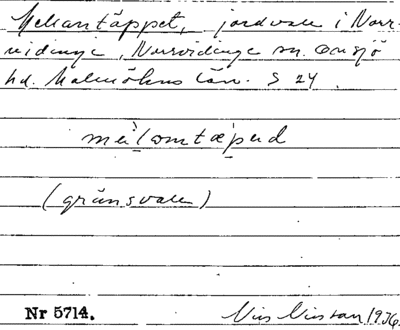 Mellantäppet, jordvall i Norr-
vidinge, Norrvidinge sn. Onsjö
hd. Malmöhus län. S 24.
mɛ̀lomtæpəd
(gränsvall)
Nr 5714. 1936.